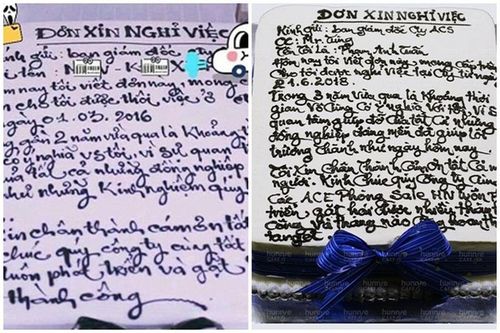 ĐƠN XIN NGHỈ VIỆC
gửi: ban giám đốc Cty
tôi tên
nay tôi viết đơn này mong
cho tôi được thôi việc ở
ngày 01.03.2016
gần 2 năm vừa qua là khoảng
có ý nghĩa vs tôi, vì sự quan
cả những đồng nghiệp
như những kinh nghiệm quý
xin chân thành cám ơn tất
chúc quý công ty cùng tất
luôn phát triển và gặt
thành công
ĐƠN XIN NGHỈ VIỆC
Kính Gửi: ban giám đốc Cty ACS
Cc: Mr. Tùng
Tên Tôi Là: Phạm Anh Tuấn
Hôm nay tôi viết đơn này mong Cấp trên
Cho tôi được nghỉ việc tại Cty từ ngày
21.6.2018.
Trong 3 năm vừa qua là Khoảng Thời
gian Vô Cùng Có Ý nghĩa Với Tôi. Vì sự
quan tâm giúp đỡ Của tất Cả những
đồng nghiệp đáng mến đã giúp tôi
trưởng thành như ngày hôm nay.
Tôi Xin Chân Thành Cảm ơn tất Cả mọi
người. Kính Chúc Quý Công ty Cùng
Các ACE Phòng Sale HN luôn phát
triển, gặt hái được nhiều thành
Công Và tháng nào Cũng hoàn thành
target
hunnie
CAFE